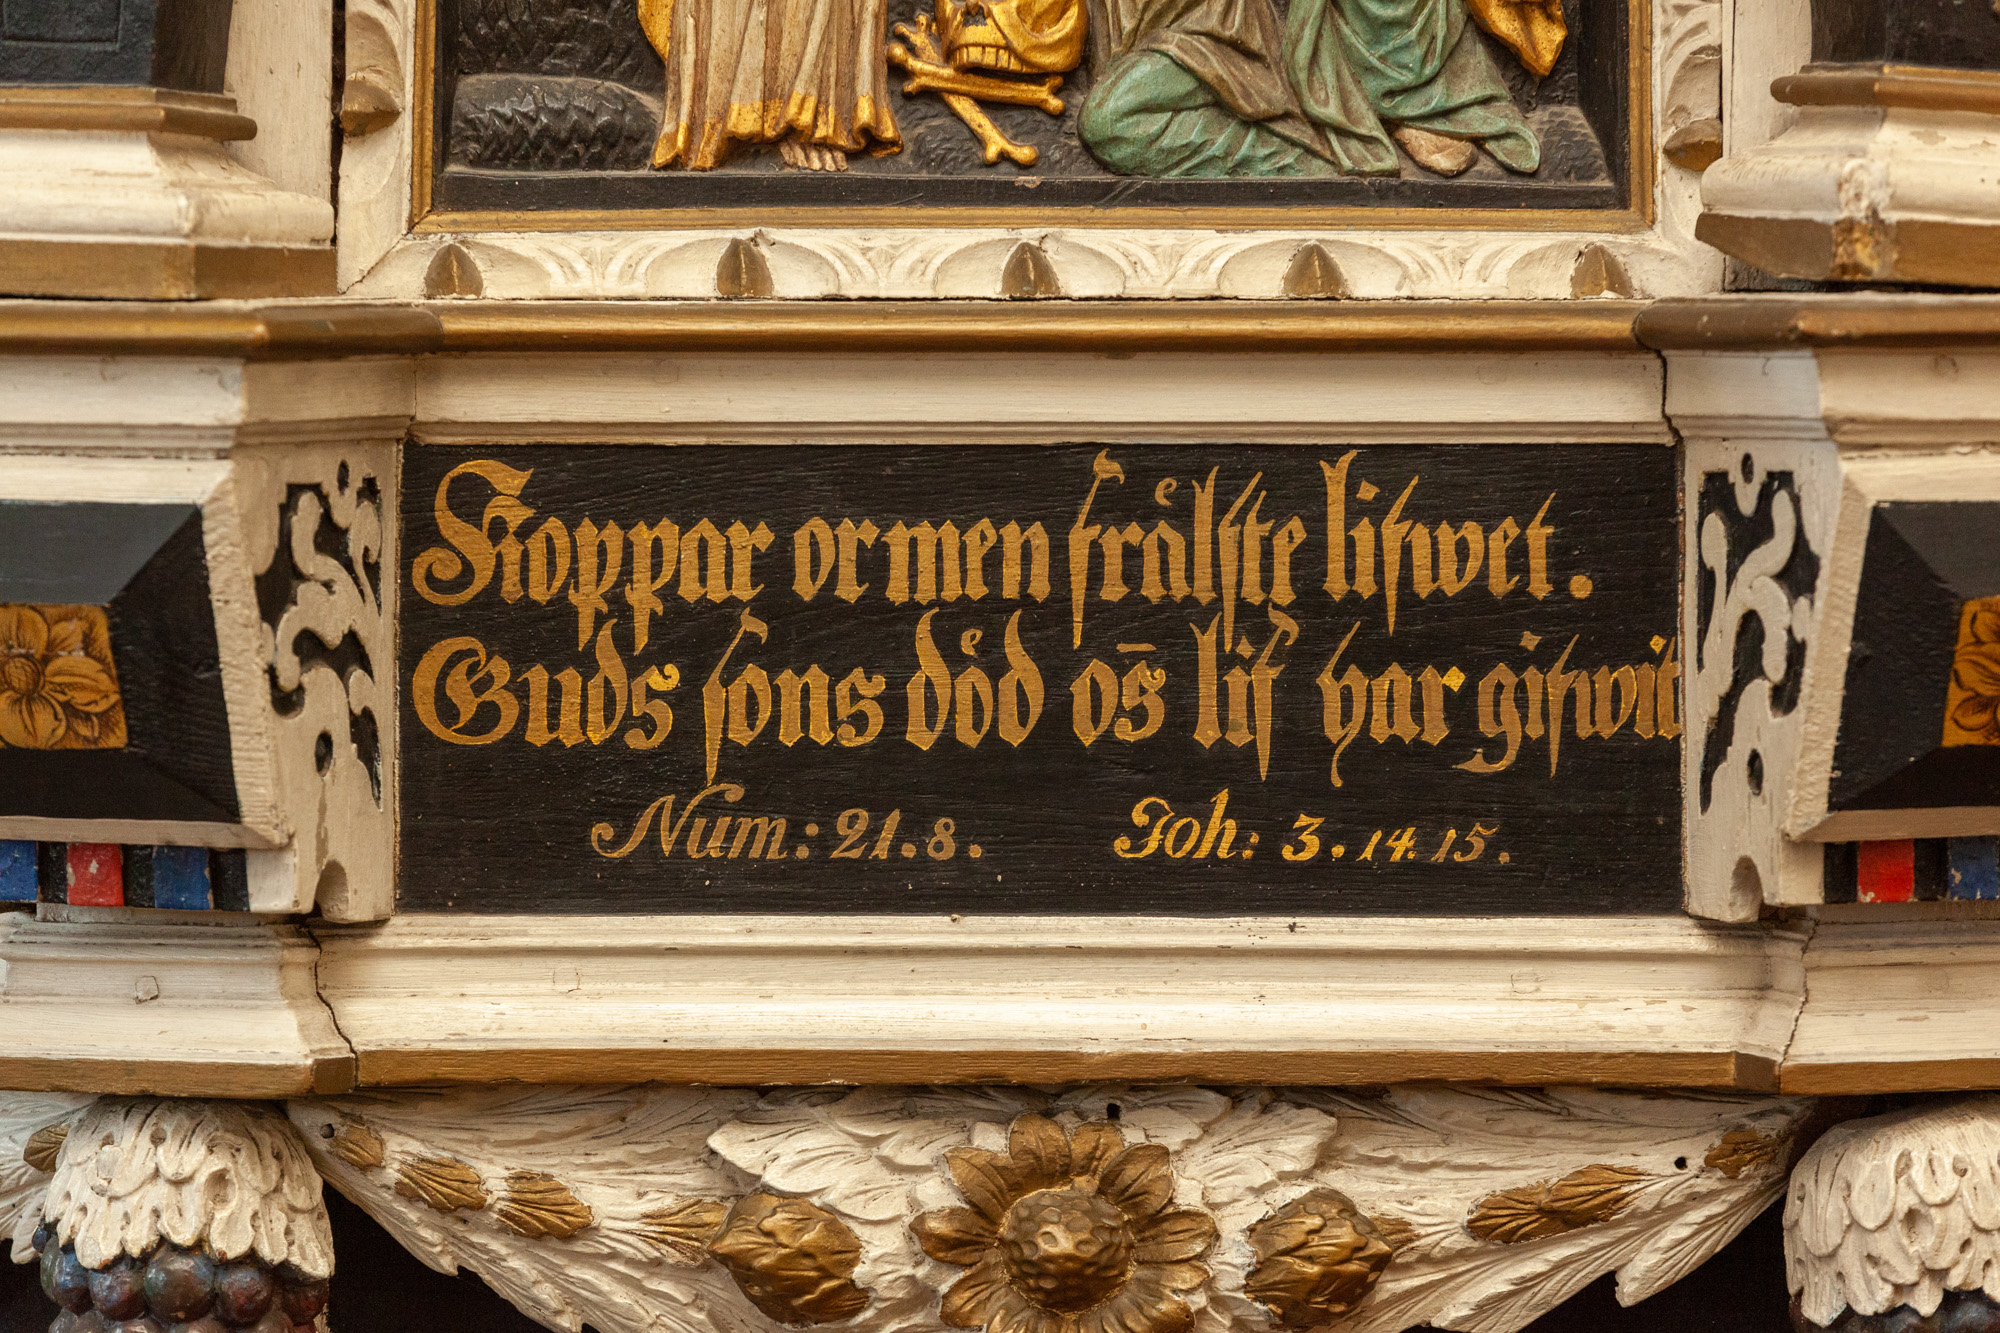 Koppar ormen fraͤlste lifwet.
Guds sons doͤd os̄ lif har gifwit
Num: 21. 8. Joh: 3. 14. 15.